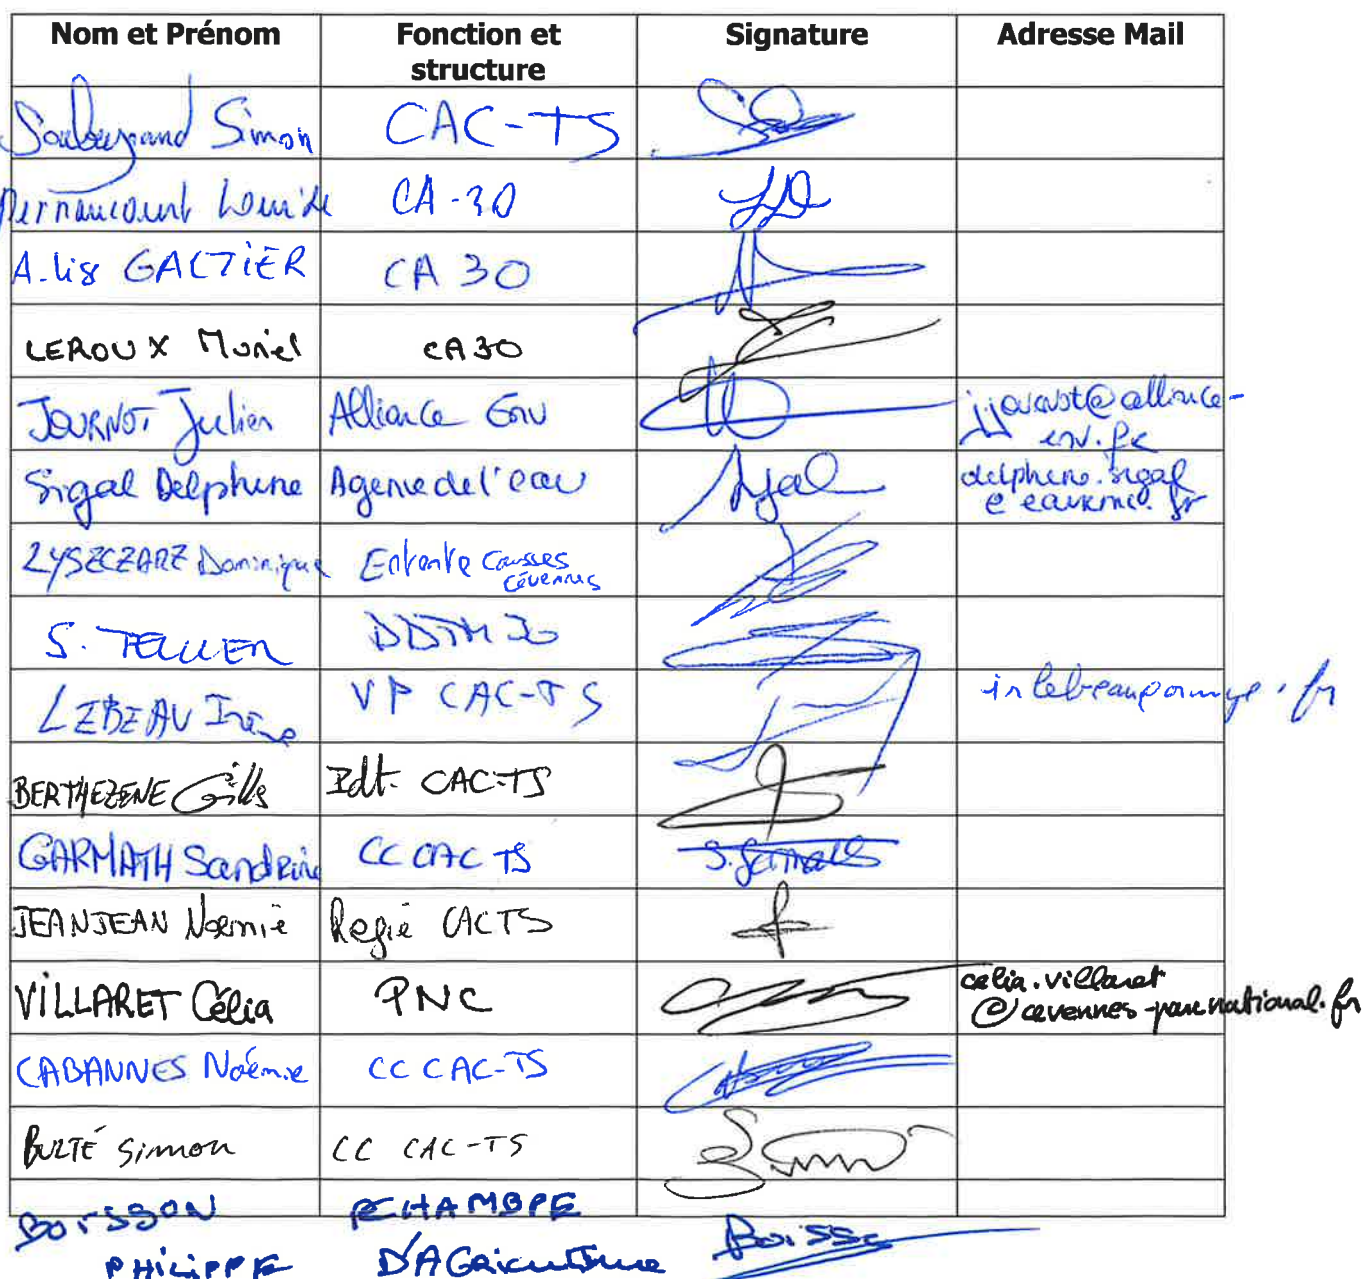 Nom et Prénom Fonction et structure Signature Adresse Mail
Soubeyrand Simon CAC-TS
Louise CA-30
A-Lis GALTIER CA 30
LEROUX Muriel CA30
JOURNOT Julien Alliance Env jjournot@alliance-
env.fr
Sigal Delphine Agence de l'eau Sigal delphine.sigal
@eaurmc.fr
LYSZCZARZ Dominique Entente Causses
Cévennes
S. TELLIER DDTM 30
LEBEAU Irène VP CAC-TS
BERTHEZENE Gilles Pdt. CAC-TS
GARMATH Sandrine CC CAC TS S. Garmath
JEANJEAN Noémie Régie CACTS
VILLARET Célia PNC celia.villaret
@cevennes-parcnational.fr
CABANNES Noémie CC CAC-TS
BULTÉ Simon CC CAC-TS
BOISSON CHAMBRE
PHILIPPE D'AGRiculture Boisso